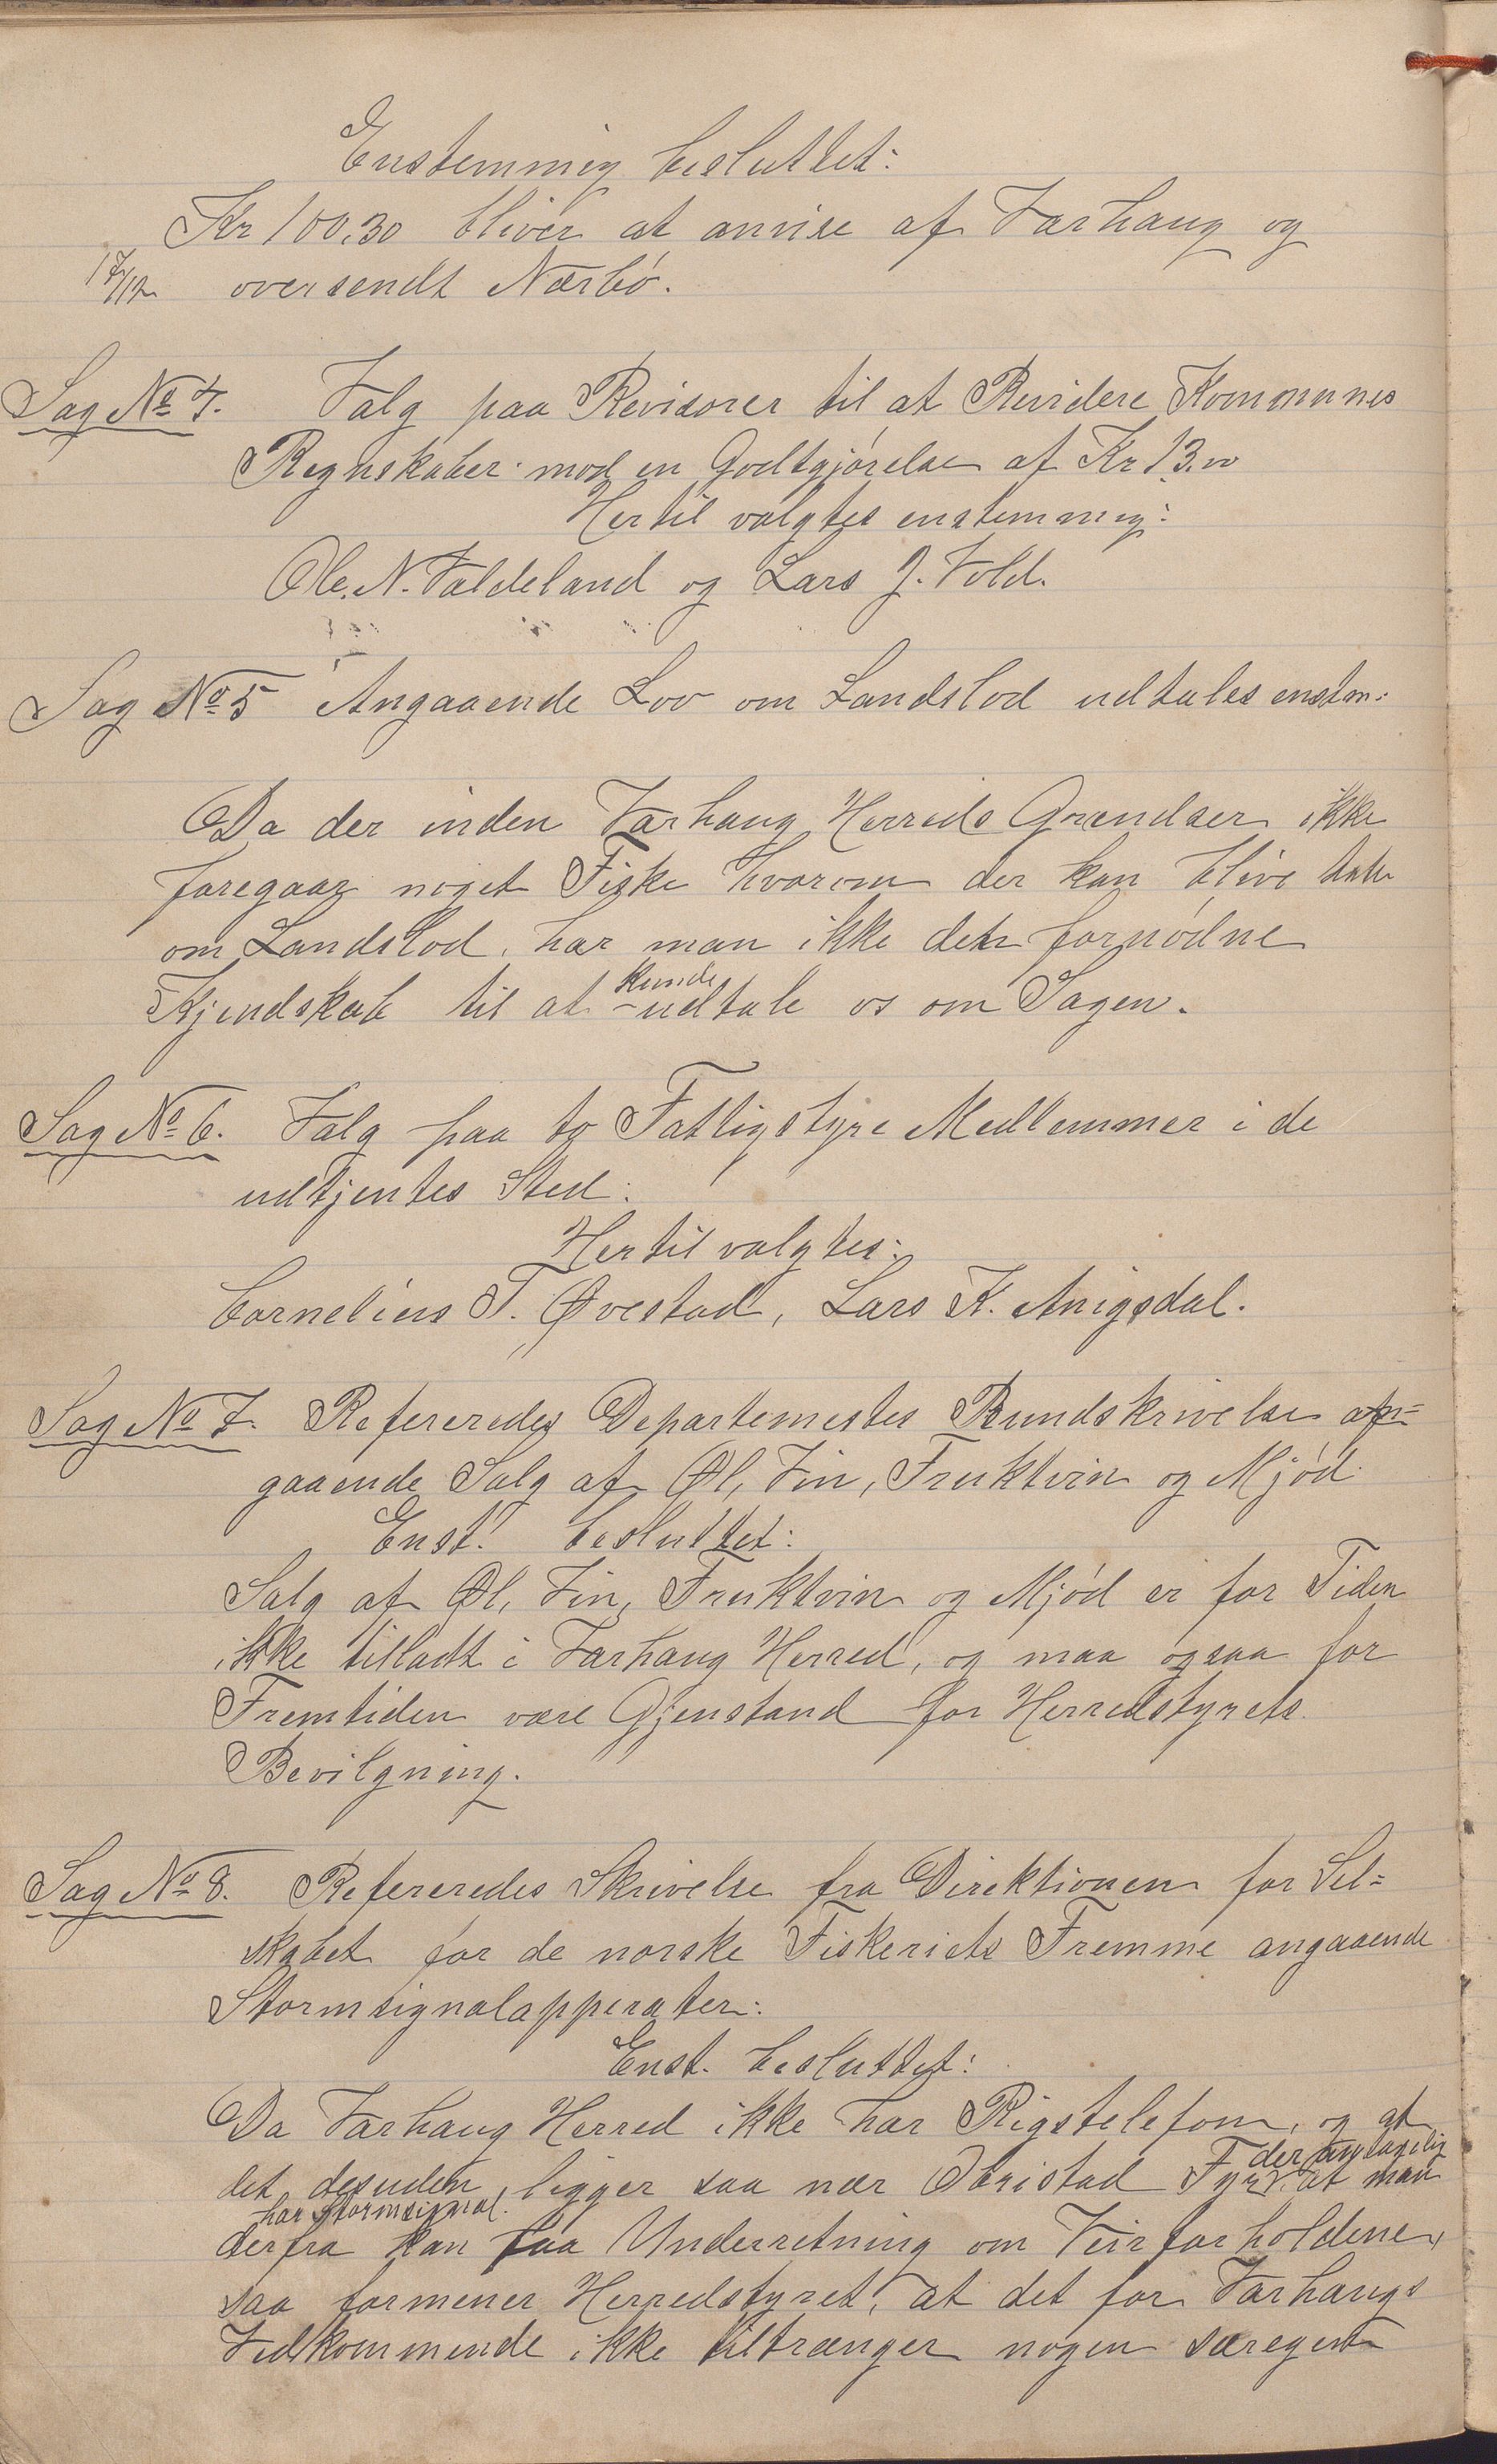 Enstemmig besluttet:
Kr 100,30 bliver at anvise af Varhaug og
17/12 oversendt Nærbö.
Sag No 4. Valg paa Revisorer til at Revidere Kommunes
Regnskaber mod en Godtgjörelse af Kr 13.00
Hertil valgtes enstemmig:
Ole. N. Valdeland og Lars J. Vold.
Sag No 5 Angaaende Lov om Landslod udtales enstm:
Da der inden Varhaug Herreds Grændser ikke
foregaar noget Fiske hvorom der kan blive tale
om Landslod, har man ikke den fornødne
Kjendskab til at kunde udtale os om Sagen.
Sag No 6. Valg paa to Fattigstyre Medlemmer i de
udtjentes Sted:
Hertil valgtes:
Cornelius T. Øvestad, Lars K. Anigsdal.
Sag No 7. Refereredes Departemestes Rundskrivelse an=
gaaende Salg af Øl, Vin, Fruktvin og Mjöd
Enst. besluttet:
Salg af Øl, Vin, Fruktvin og Mjöd er for Tiden
ikke tilladt i Varhaug Herred, og maa ogsaa for
Fremtiden være Gjenstand for Herredstyrets
Bevilgning.
Sag No 8. Refereredes Skrivelse fra Direktionen for Sel=
skabet for de norske Fiskeriets Fremme angaaende
Stormsignalapperater:
Enst. besluttet:
Da Varhaug Herred ikke har Rigstelefon, og at
det desuden ligger saa nær Obristad Fyr, der antagelig
har Stormsignal. at man
derfra kan faa Underretning om Veirforholdene,
saa formener Herredstyret, at det for Varhaugs
Vedkommende ikke tiltrænger nogen særegen